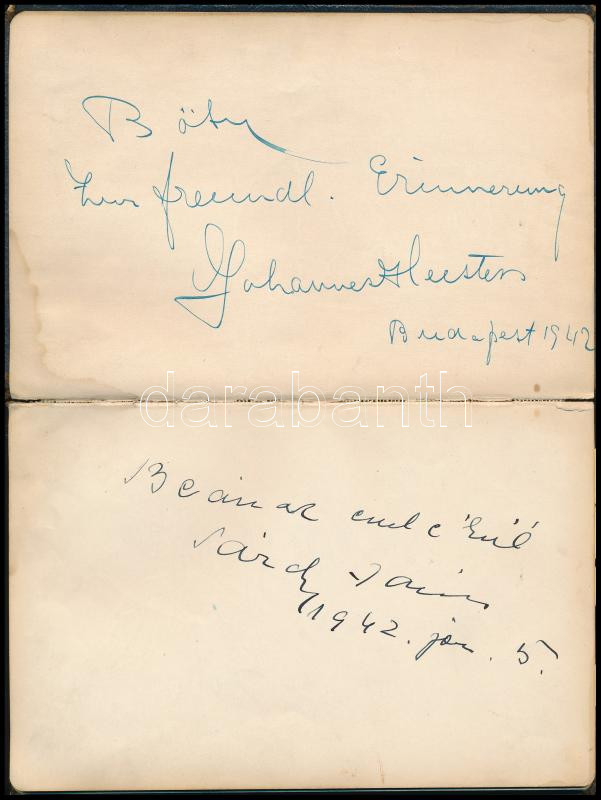 zur freundl. Erinnerung
Johannes Heesters
Budapest 1942
darabanth
emlékül
Sárdy János
1942. jan. 5.